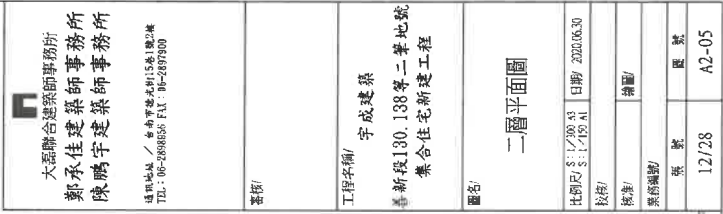 大磊聯合建築師事務所
鄭承佳建築師事務所
陳鵬宇建築師事務所
通訊地址／台南市德光街15巷1號2樓
TEL：06-2898856 FAX：06-2897900
審核/
工程名稱/
宇成建築
善新段130.138等二筆地號
集合住宅新建工程
圖名/
二層平面圖
比例尺/ S:1/300 A3
S:1/150 A1
日期/ 2020.06.30
校核/
核准/
繪圖/
業務編號/
張 號
圖 號
12/28
A2-05